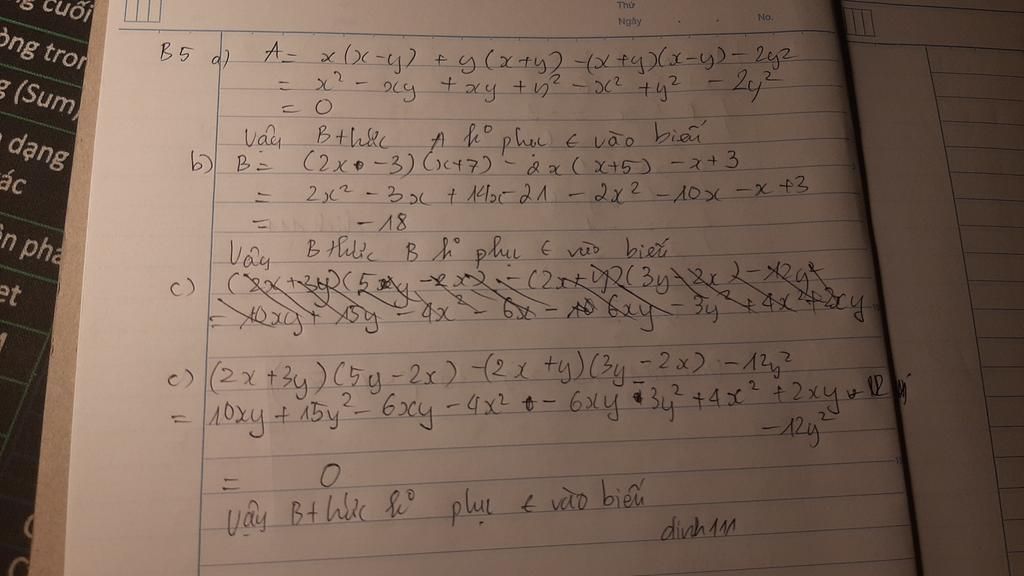 g cuối
òng tron
g (Sum,
n dạng
ác
ân phâ
et
Thứ
Ngày . . No.
B5 a) A = x(x-y) + y(x+y) -(x+y)(x-y) - 2y²
= x² - xy + xy + y² - x² + y² - 2y²
= 0
Vậy B thức A k° phụ ∈ vào biến
b) B = (2x - 3)(x+7) - 2x(x+5) - x + 3
= 2x² - 3x + 14x - 21 - 2x² - 10x - x + 3
= - 18
Vậy B thức B k° phụ ∈ vào biến
c) (2x+3y)(5y - 2x) - (2x+y)(3y - 2x) - 12y²
= 10xy + 15y - 4x² - 6x - 6xy - 3y² + 4x² + 2xy
c) (2x + 3y)(5y - 2x) - (2x + y)(3y - 2x) - 12y²
= 10xy + 15y² - 6xy - 4x² - 6xy - 3y² + 4x² + 2xy
- 12y²
= 0
Vậy B thức k° phụ ∈ vào biến
dinh111